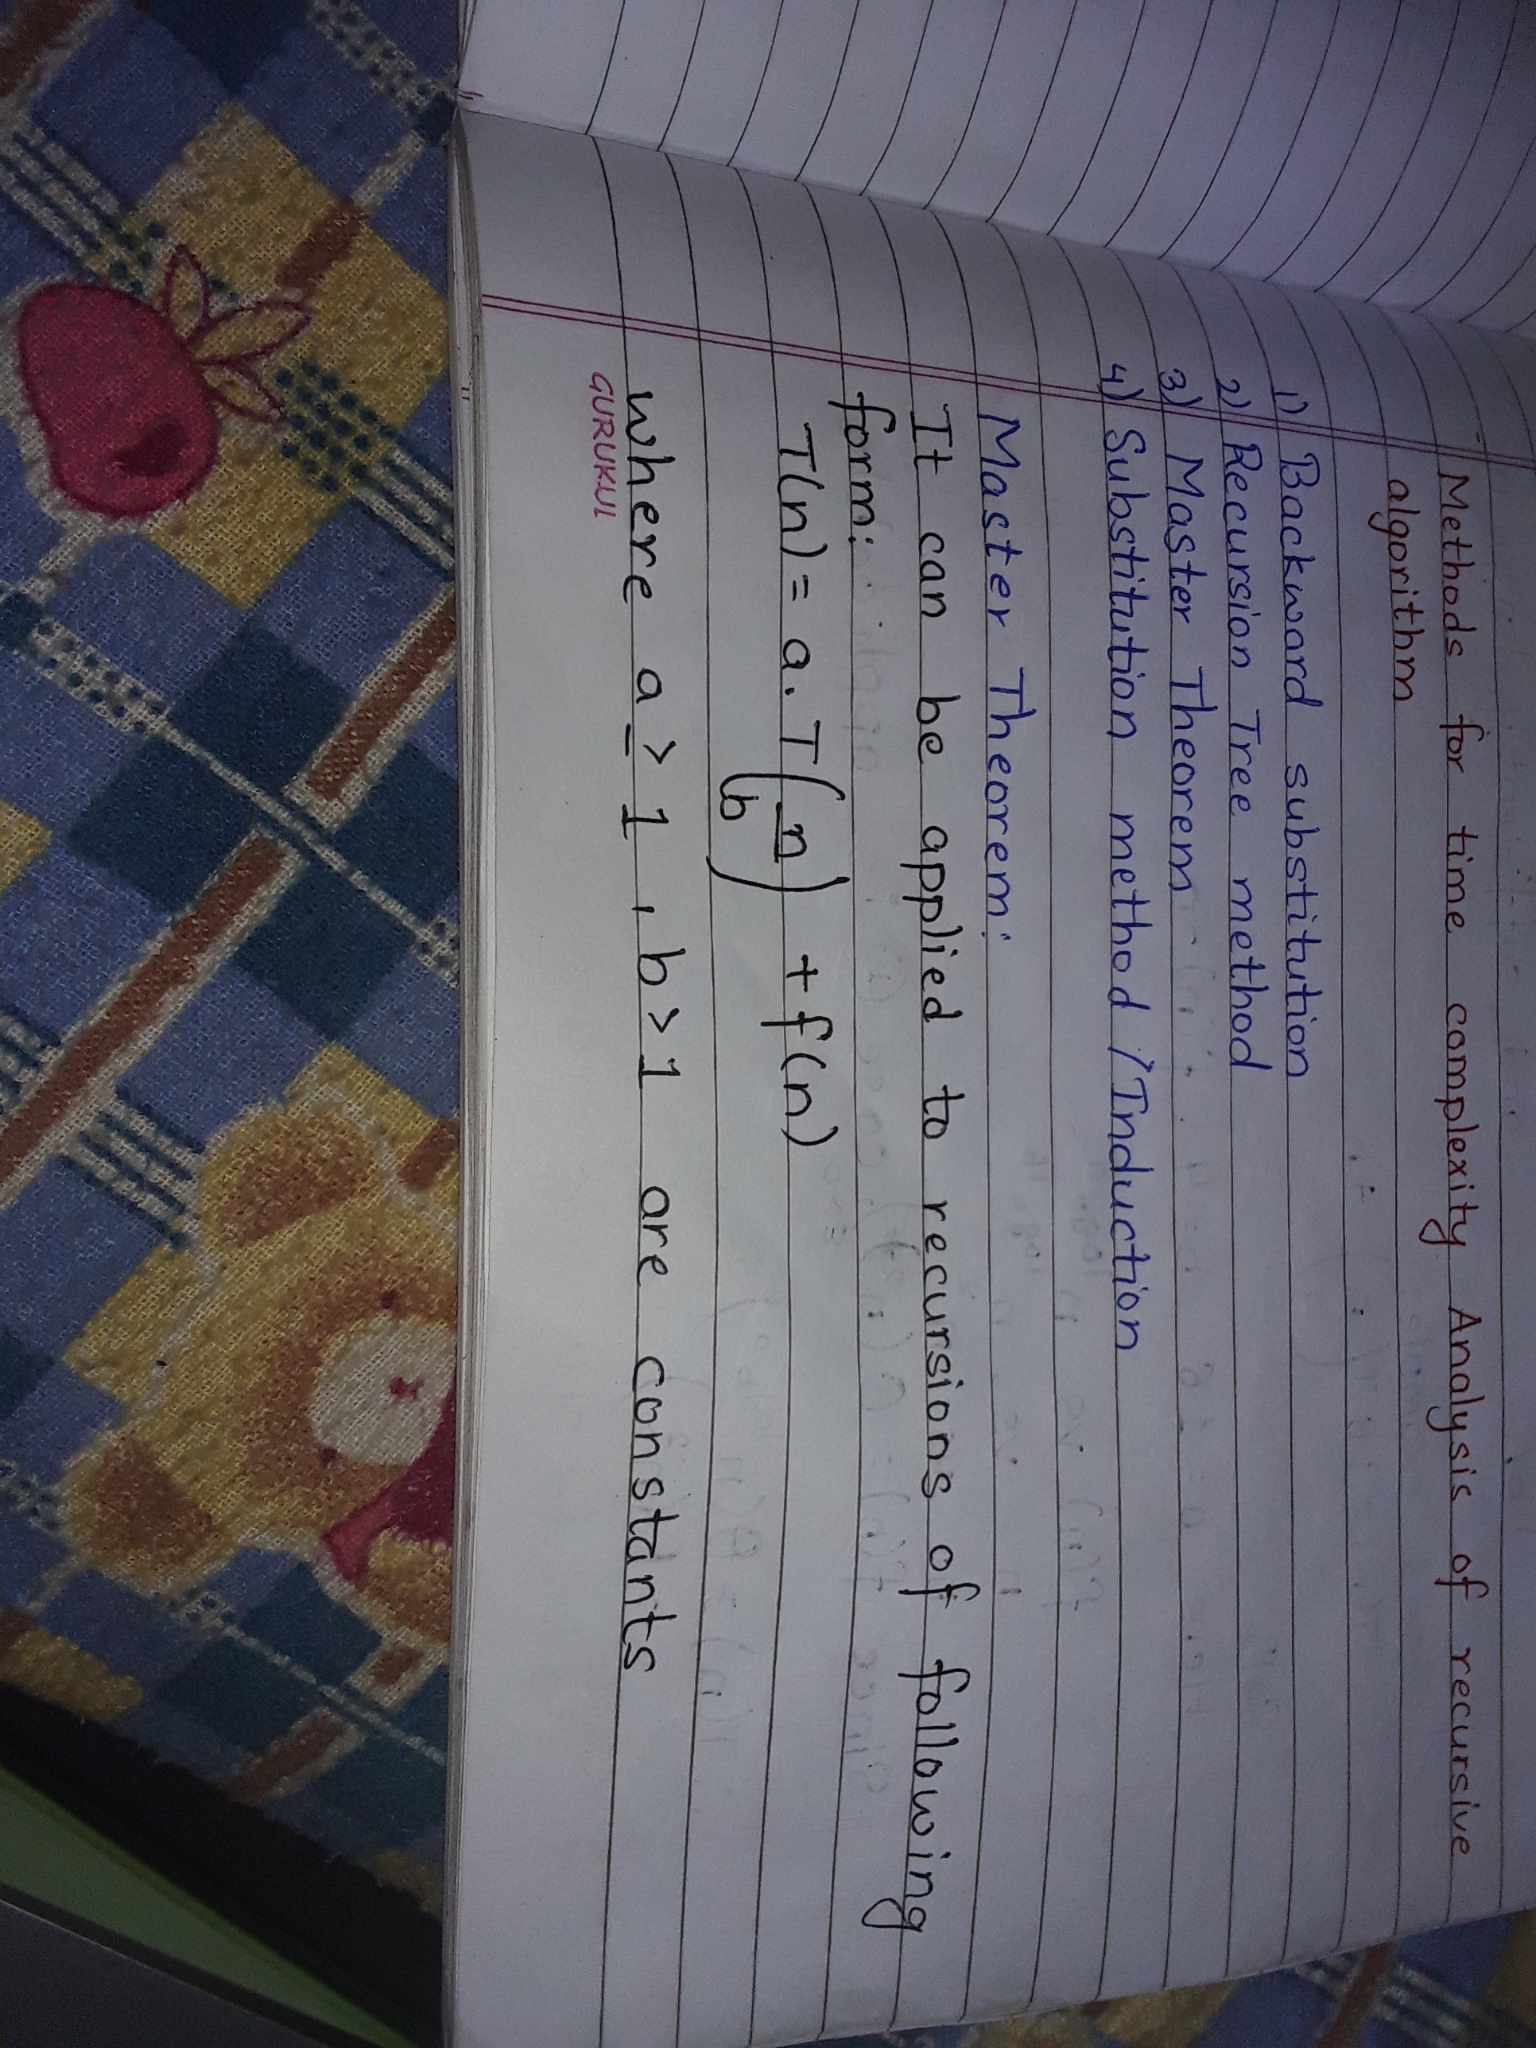 Methods for time complexity Analysis of recursive
algorithm
1) Backward substitution
2) Recursion Tree method
3) Master Theorem
4) Substitution method / Induction
Master Theorem:
It can be applied to recursions of following
form:
T(n) = a. T(n/b) + f(n)
where a ≥ 1, b > 1 are constants
GURUKUL